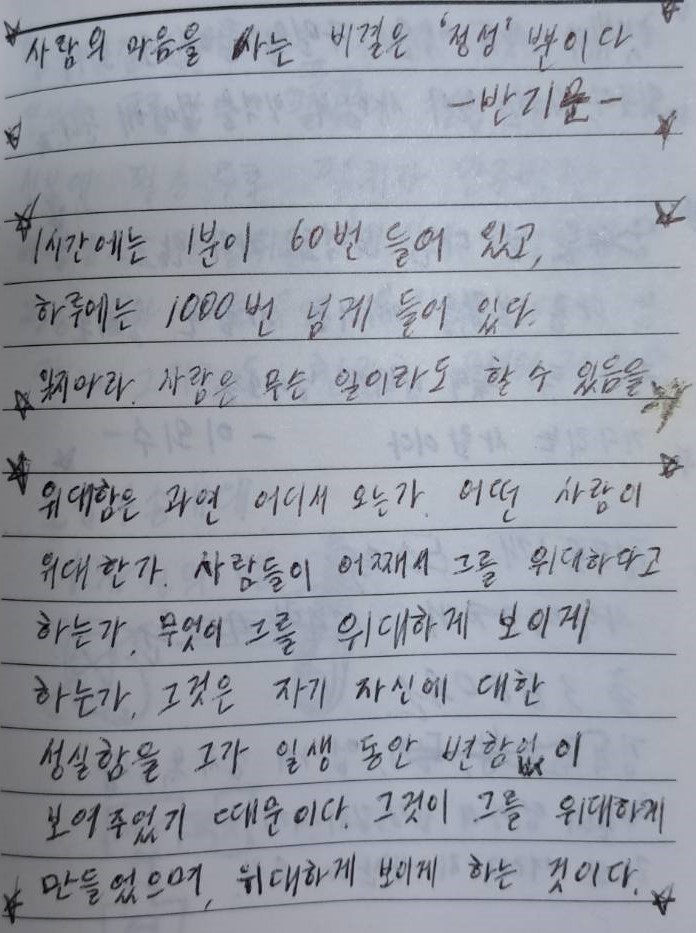 사람의 마음을 사는 비결은 '정성' 뿐이다
-반기문-
1시간에는 1분이 60번 들어 있고,
하루에는 1000번 넘게 들어 있다.
잊지마라. 사람은 무슨 일이라도 할 수 있음을
위대함은 과연 어디서 오는가. 어떤 사람이
위대한가. 사람들이 어째서 그를 위대하다고
하는가. 무엇이 그를 위대하게 보이게
하는가. 그것은 자기 자신에 대한
성실함을 그가 일생 동안 변함없이
보여주었기 때문이다. 그것이 그를 위대하게
만들었으며, 위대하게 보이게 하는 것이다.